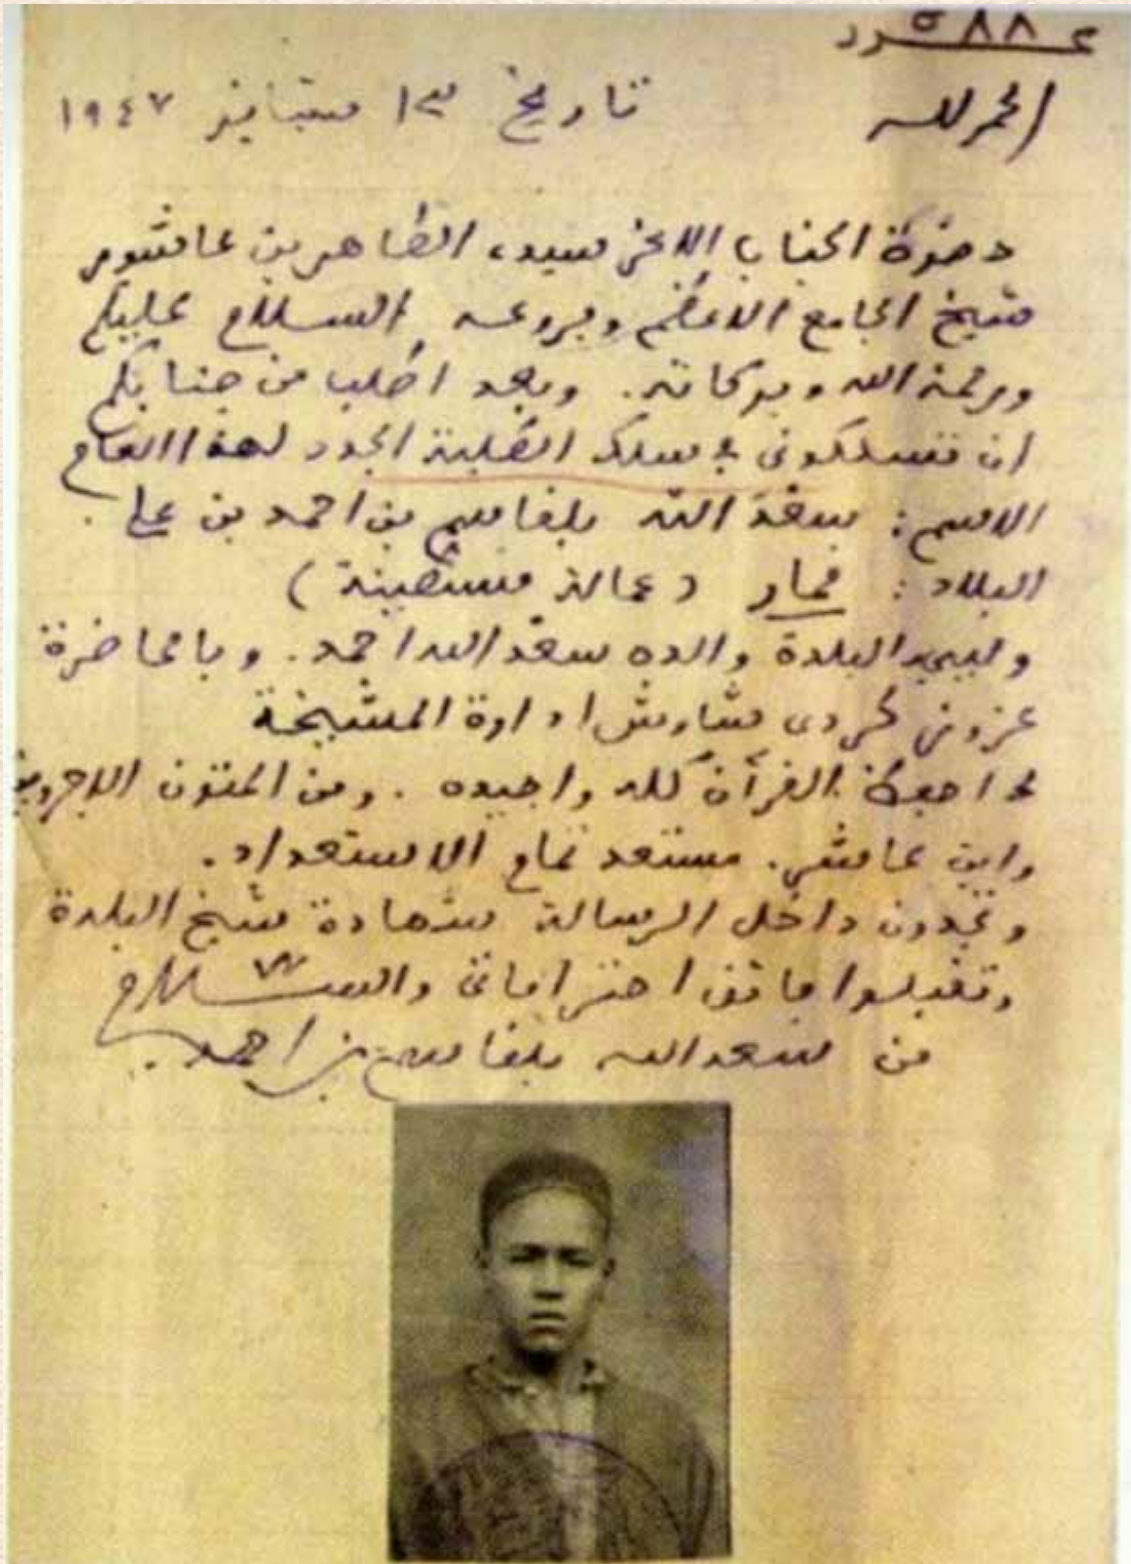 ٥٨٨ عـــدد
الحمد لله تاريخ ١٣ سبتانبر ١٩٤٧
حضرة الجناب الاعز سيدي الطاهر بن عاشور
شيخ الجامع الاعظم وفروعه السلام عليكم
ورحمة الله وبركاته. وبعد اطلب من جنابكم
ان تسلكوني في سلك الطلبة الجدد لهذا العام
الاسم: سعد الله بلقاسم بن احمد بن علي
البلاد: قمار (عمالة قسنطينة)
البلدة والده سعد الله احمد. وبالحاضرة
ادارة المشيخة
احفظ القرآن كله واجيده. ومن المتون الاجرومية
وابن عاشر. مستعد تمام الاستعداد.
وتجدون داخل الرسالة شهادة شيخ البلدة
وتقبلوا فائق احتراماتي والســـلام
من سعد الله بلقاسم بن احمد.